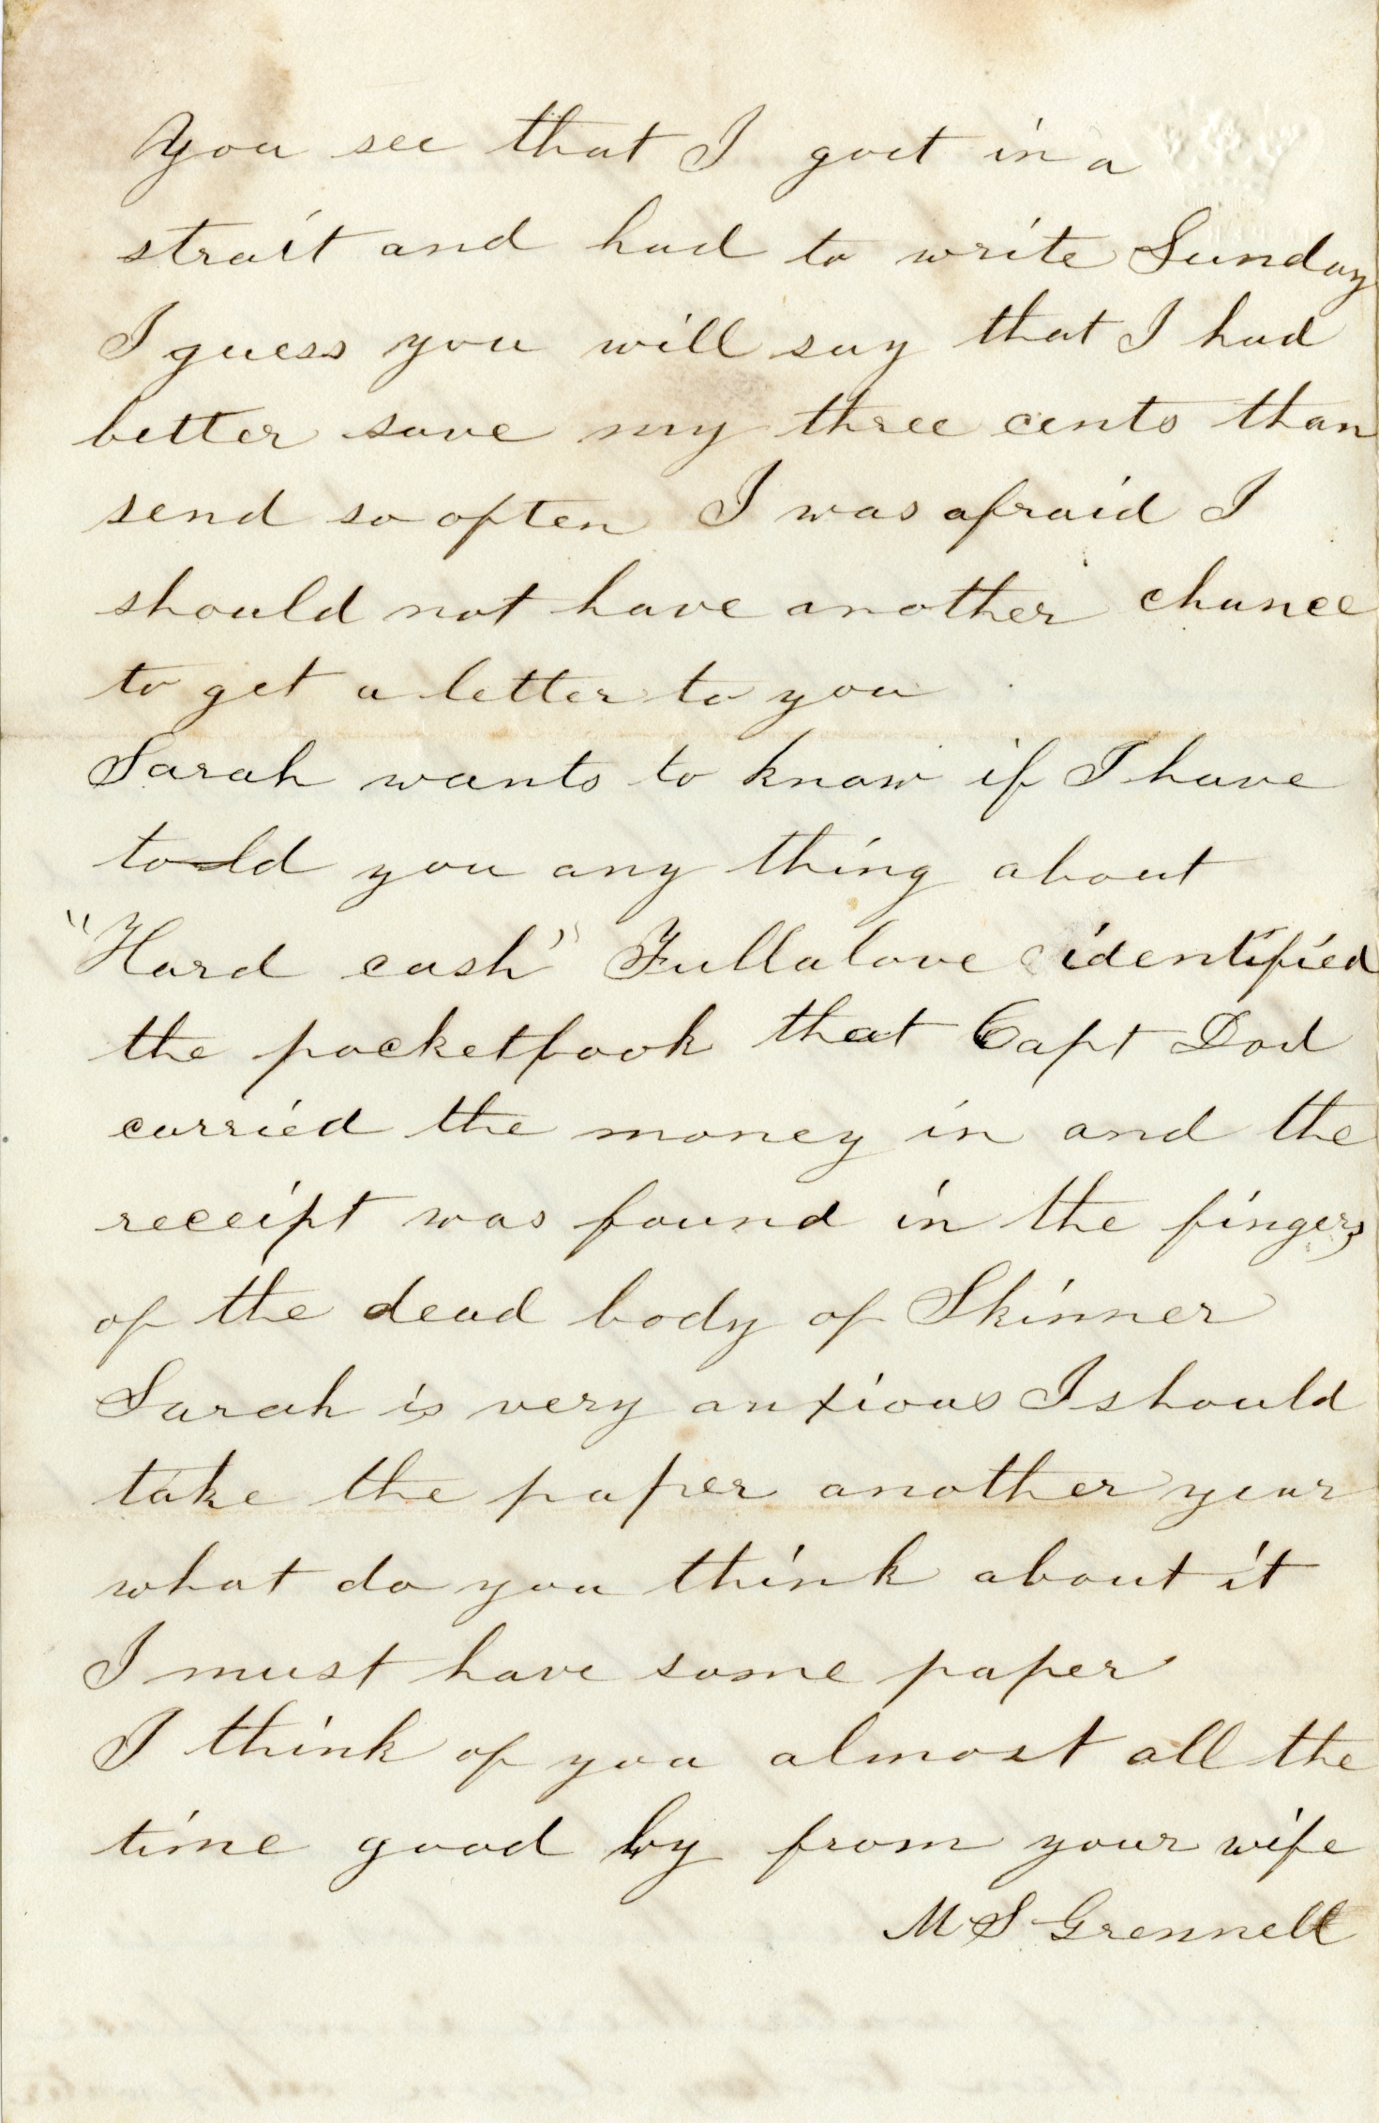 You see that I goet in a
strait and had to write Sunday
I guess you will say that I had
better save my three cents than
send so often I was afraid I
should not have another chance
to get a letter to you
Sarah wants to know if I have
told you any thing about
"Hard cash" Fullalove identified
the pocketbook that Capt Dod
carried the money in and the
receipt was found in the fingers
of the dead body of Skinner
Sarah is very anxious I should
take the paper another year
what do you think about it
I must have some paper
I think of you almost all the
time good by from your wife
M S Grennell